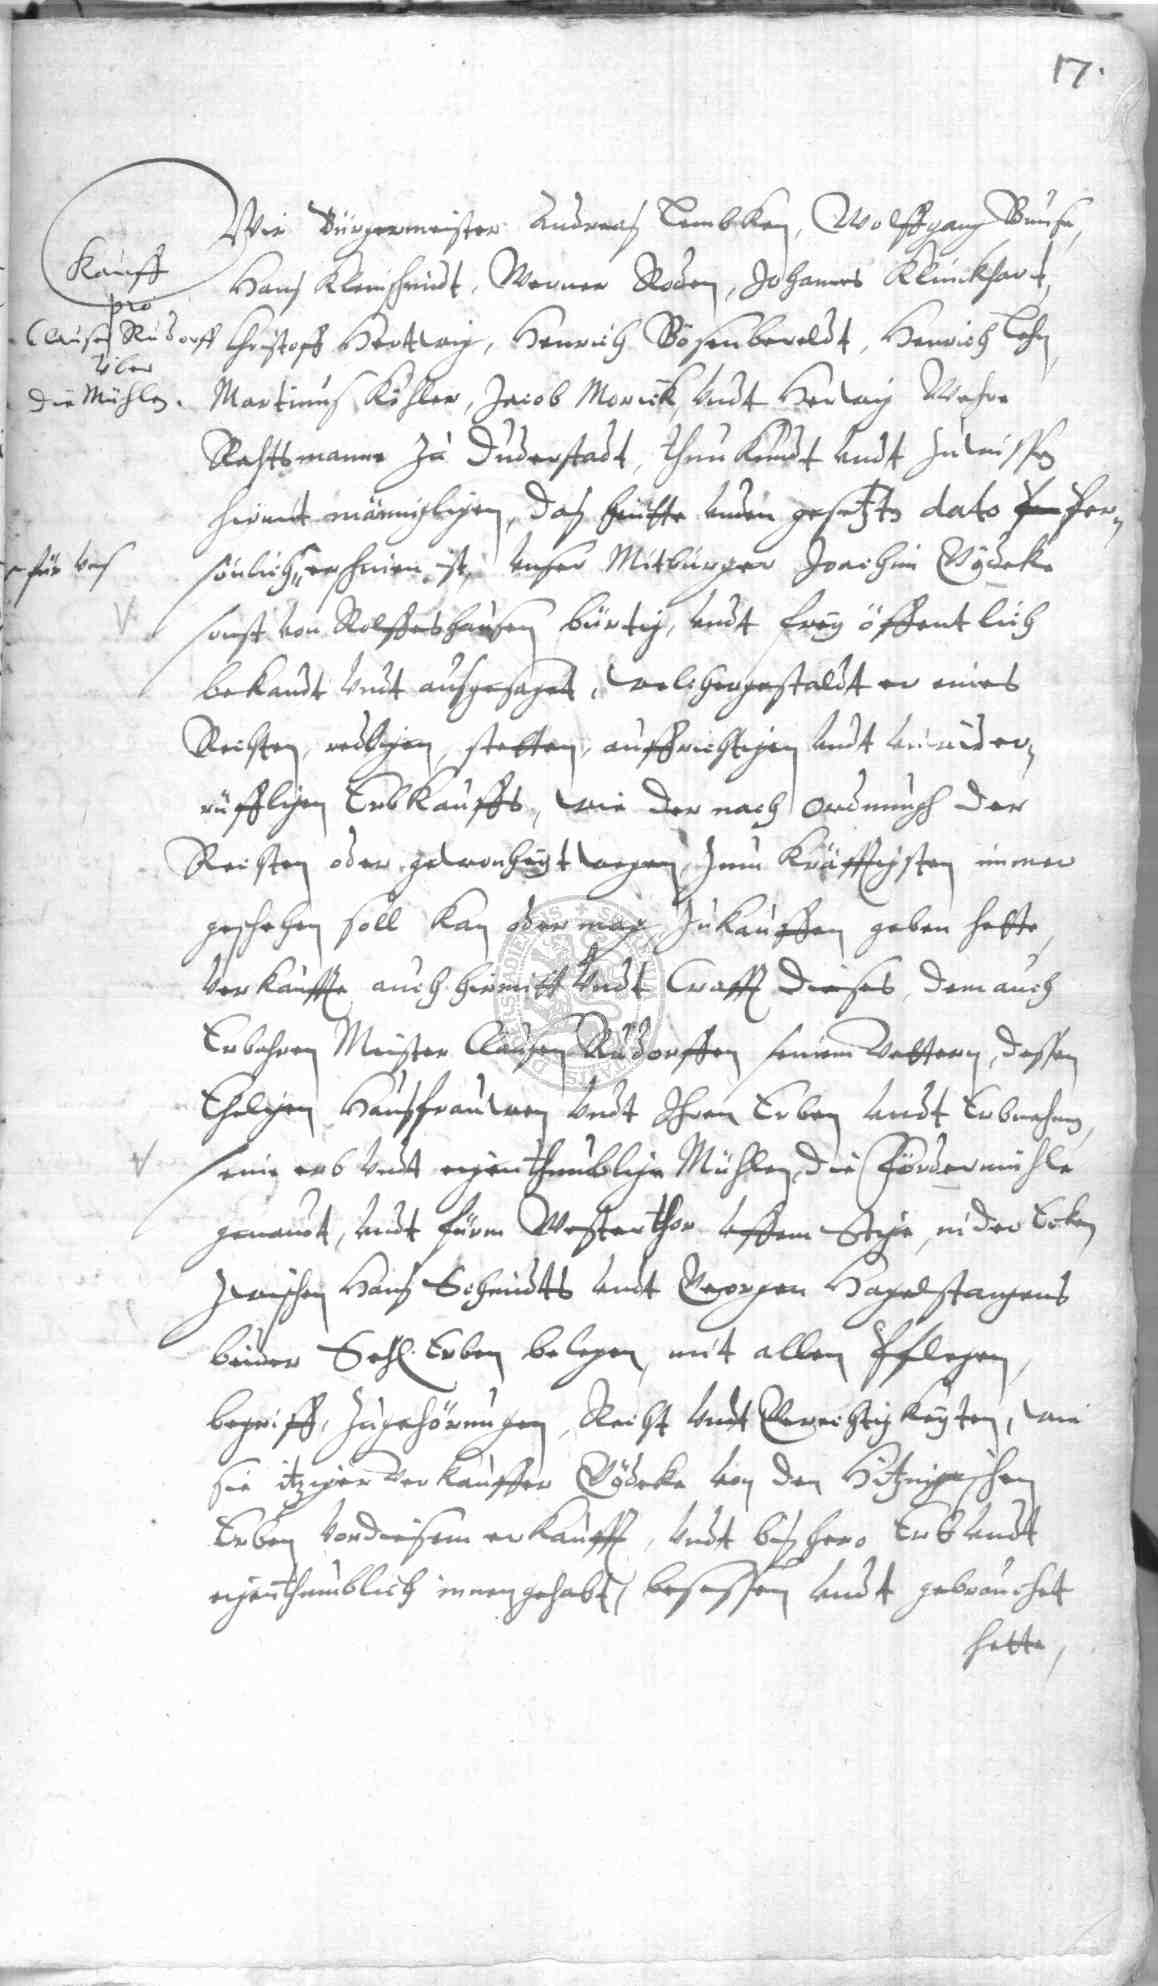 17.
Kauff
pro
Clauses Rudorff
über
die Mühlen.
Wir Bürgermeister Andreas Lembken, Wolffgang Buuse,
Hans Kleinschmidt, Werner Roden, Johannes Klinckhardt,
Christoff Hertwig, Henrich Bösenbereldt, Henrich Lehn,
Martinus Köhler, Jacob Morick, undt Herwig Wehre
Rahtsmanne zu Duderstadt, thun kundt undt zuwissen
hiemit männiglichen, das heutte unden gesetzts dato per„
für uns
sönlich erschienen ist, unser Mitbürger Joachim Gödeke
sonst von Rolffeshausen bürtig, undt frey öffentlich
bekandt undt ausgesaget, welchergestaldt er eines
Rechten, redlichen, stetten, auffrichtigen undt unwider„
rüfflichen Erbkauffs, wie der nach ordnungh der
Rechten oder gewonheyt wegen, zum kräfftigsten immer
geschehen soll kan oder mag, zukauffen geben hette,
verkauffte auch hiemitt undt Crafft dieses, dem auch
Erbahren Meister Clausen Rudorffen seinem Vettern, dessen
Ehelichen Hausfrauwen undt Ihren Erben undt Erbnehmen,
seine erb undt eigenthumbliche Mühlen, die Fördermühle
genandt, undt fürm Westerthor uffem Stige, in der Ecken
zwischen Hans Schmidts undt Georgen Hagelstangens
beider Sehl. Erben belegen, mit allen Pflegen,
begriff, zugehörungen, Recht undt Gerechtigkeyten, wie
sie itziger verkauffer Gödeke von den Hitzigeschen
Erben vordiesem erkaufft, undt bishero Erb undt
eigenthumblich innengehabt, besessen undt gebrauchet
hette,